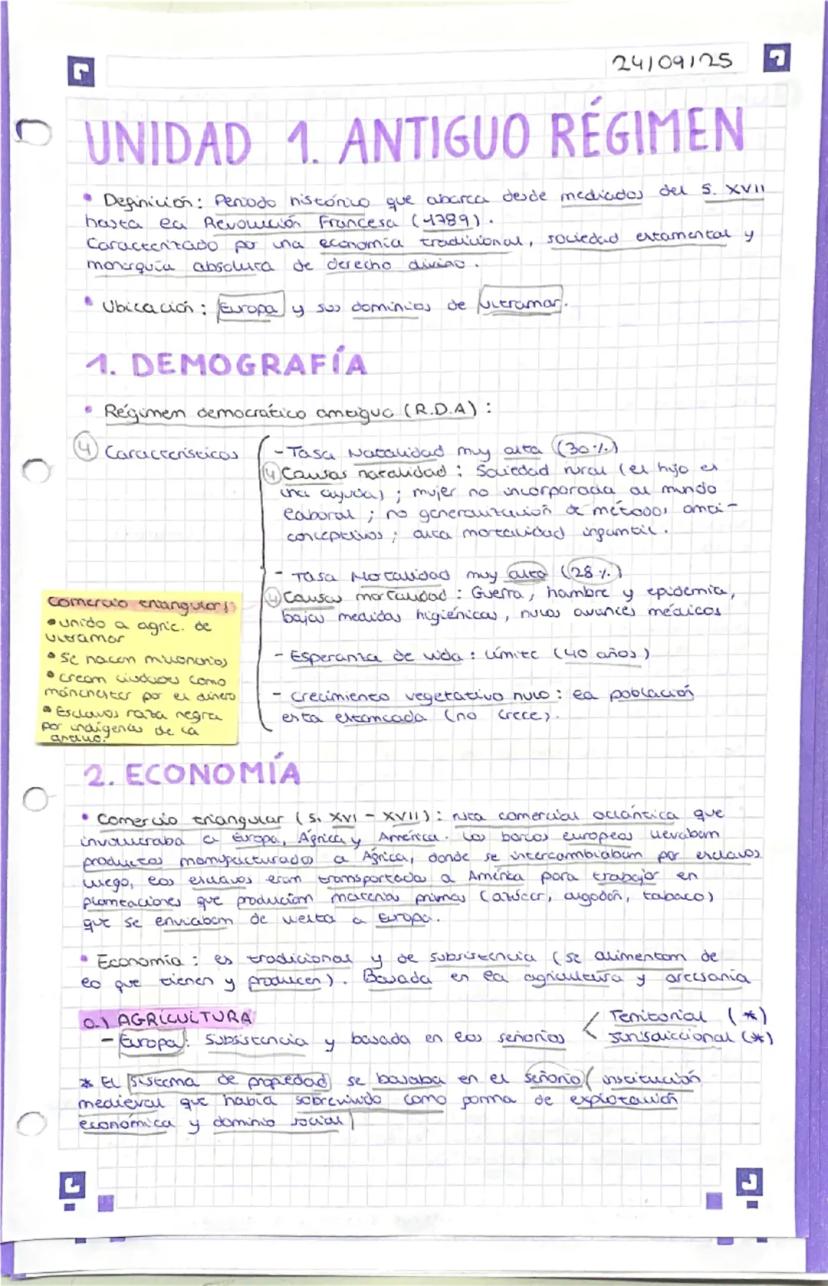 24/09/25
UNIDAD 1. ANTIGUO RÉGIMEN
• Definición: Periodo histórico que abarca desde mediados del S. XVII
hasta la Revolución Francesa (1789).
Caracterizado por una economía tradicional, sociedad estamental y
monarquía absoluta de derecho divino.
• Ubicación: Europa y sus dominios de ultramar.
1. DEMOGRAFÍA
• Régimen democrático antiguo (R.D.A):
4 Características
- Tasa Natalidad muy alta (30%)
4 Causas natalidad: Sociedad rural (el hijo es
una ayuda); mujer no incorporada al mundo
laboral; no generalización de métodos anti-
conceptivos; alta mortalidad infantil.
- Tasa Mortalidad muy alta (28%)
4 Causas mortalidad: Guerra, hambre y epidemia,
bajas medidas higiénicas, nulos avances médicos
- Esperanza de vida: límite (40 años)
- Crecimiento vegetativo nulo: la población
esta estancada (no crece).
Comercio triangular:
• unido a agric. de
ultramar
• Se hacen millonarios
• Crean ciudades como
mánchester por el dinero
• Esclavos raza negra
por indígenas de la
2. ECONOMÍA
• Comercio triangular (S. XVI - XVII): ruta comercial oclántica que
involucraba a Europa, África y América. Los barcos europeos llevaban
productos manufacturados a África, donde se intercambiaban por esclavos
luego, los esclavos eran transportados a América para trabajar en
plantaciones que producían materias primas (azúcar, algodón, tabaco)
que se enviaban de vuelta a Europa.
• Economía: es tradicional y de subsistencia (se alimentan de
lo que tienen y producen). Basada en la agricultura y artesanía
a.) AGRICULTURA
- Europa: Subsistencia y basada en los señoríos < Territorial (*)
Jurisdiccional (*)
* El sistema de propiedad se basaba en el señorío (institución
medieval que había sobrevivido como forma de explotación
económica y dominio social)